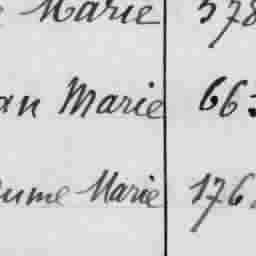 Marie 578
an Marie 663
ume Marie 176